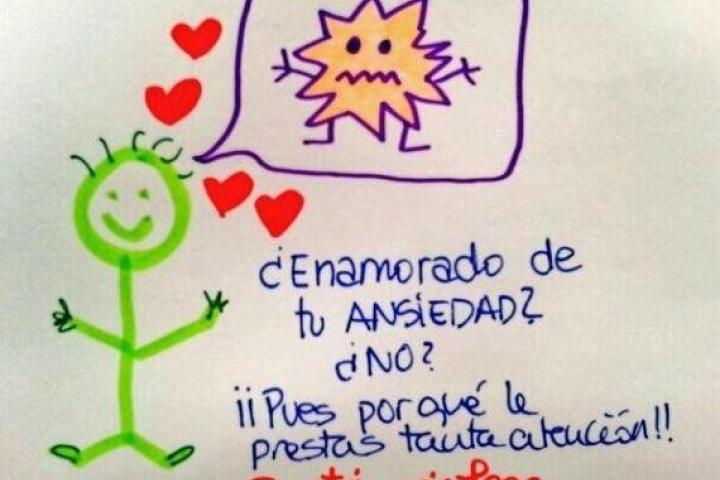 ¿Enamorado de
tu ANSiEDAD?
¿NO?
¡¡Pues porqué le
prestas tanta atención!!